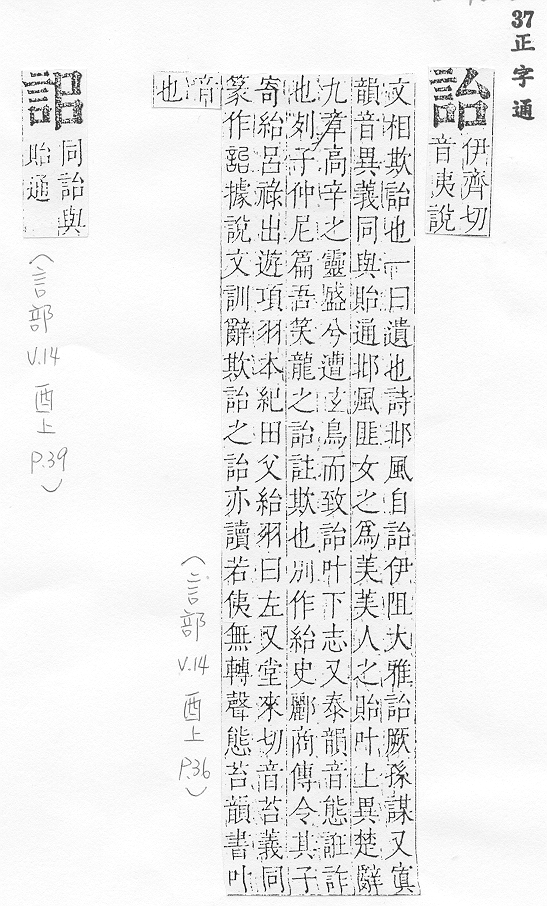 37正字通
詒
伊齊切
音夷說
文相欺詒也一曰遺也詩邶風自詒伊阻大雅詒厥孫謀又寘
韻音異義同與貽通邶風匪女之爲美美人之貽叶上異楚辭
九章高辛之靈盛兮遭玄鳥而致詒叶下志又泰韻音態誑詐
也列子仲尼篇吾笑龍之詒註欺也別作紿史酈商傳令其子
寄紿呂祿出遊項羽本紀田父紿羽曰左又堂來切音苔義同
篆作詒據說文訓辭欺詒之詒亦讀若俟無轉聲態苔韻書叶
音
也
(言部 V.14 酉上 P.36)
䛊
同詒與
貽通
(言部 V.14 酉上 P.39)